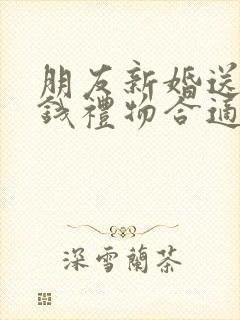 朋友新婚送
錢禮物合適
深雪蘭茶